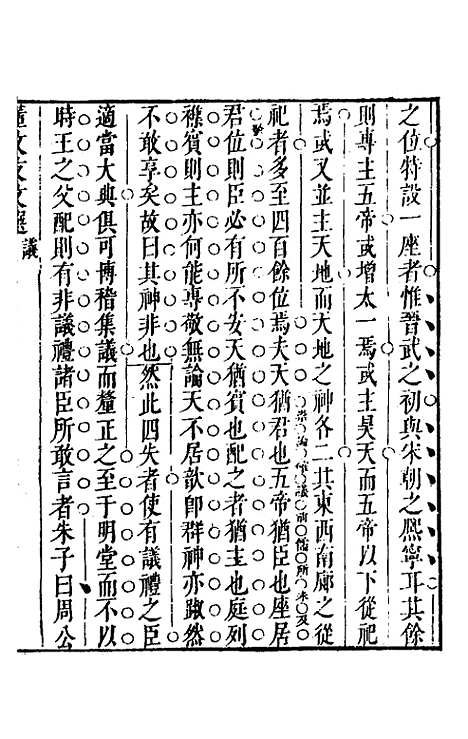 之位特設一座者惟晉武之初與宋朝之熈寧耳其餘
則專主五帝或增太一焉或主昊天而五帝以下從祀
焉或又並主天地而天地之神各二其東西南廊之從
祀者多至四百餘位焉夫天猶君也五帝猶臣也座居
崇論偉議前儒所未及
君位則臣必有所不安天猶賓也配之者猶主也庭列
襍賓則主亦何能專敬無論天不居歆卽群神亦踧然
不敢享矣故曰其神非也然此四失者使有議禮之臣
適當大典俱可博稽集議而釐正之至于明堂而不以
時王之父配則有非議禮諸臣所敢言者朱子曰周公
議